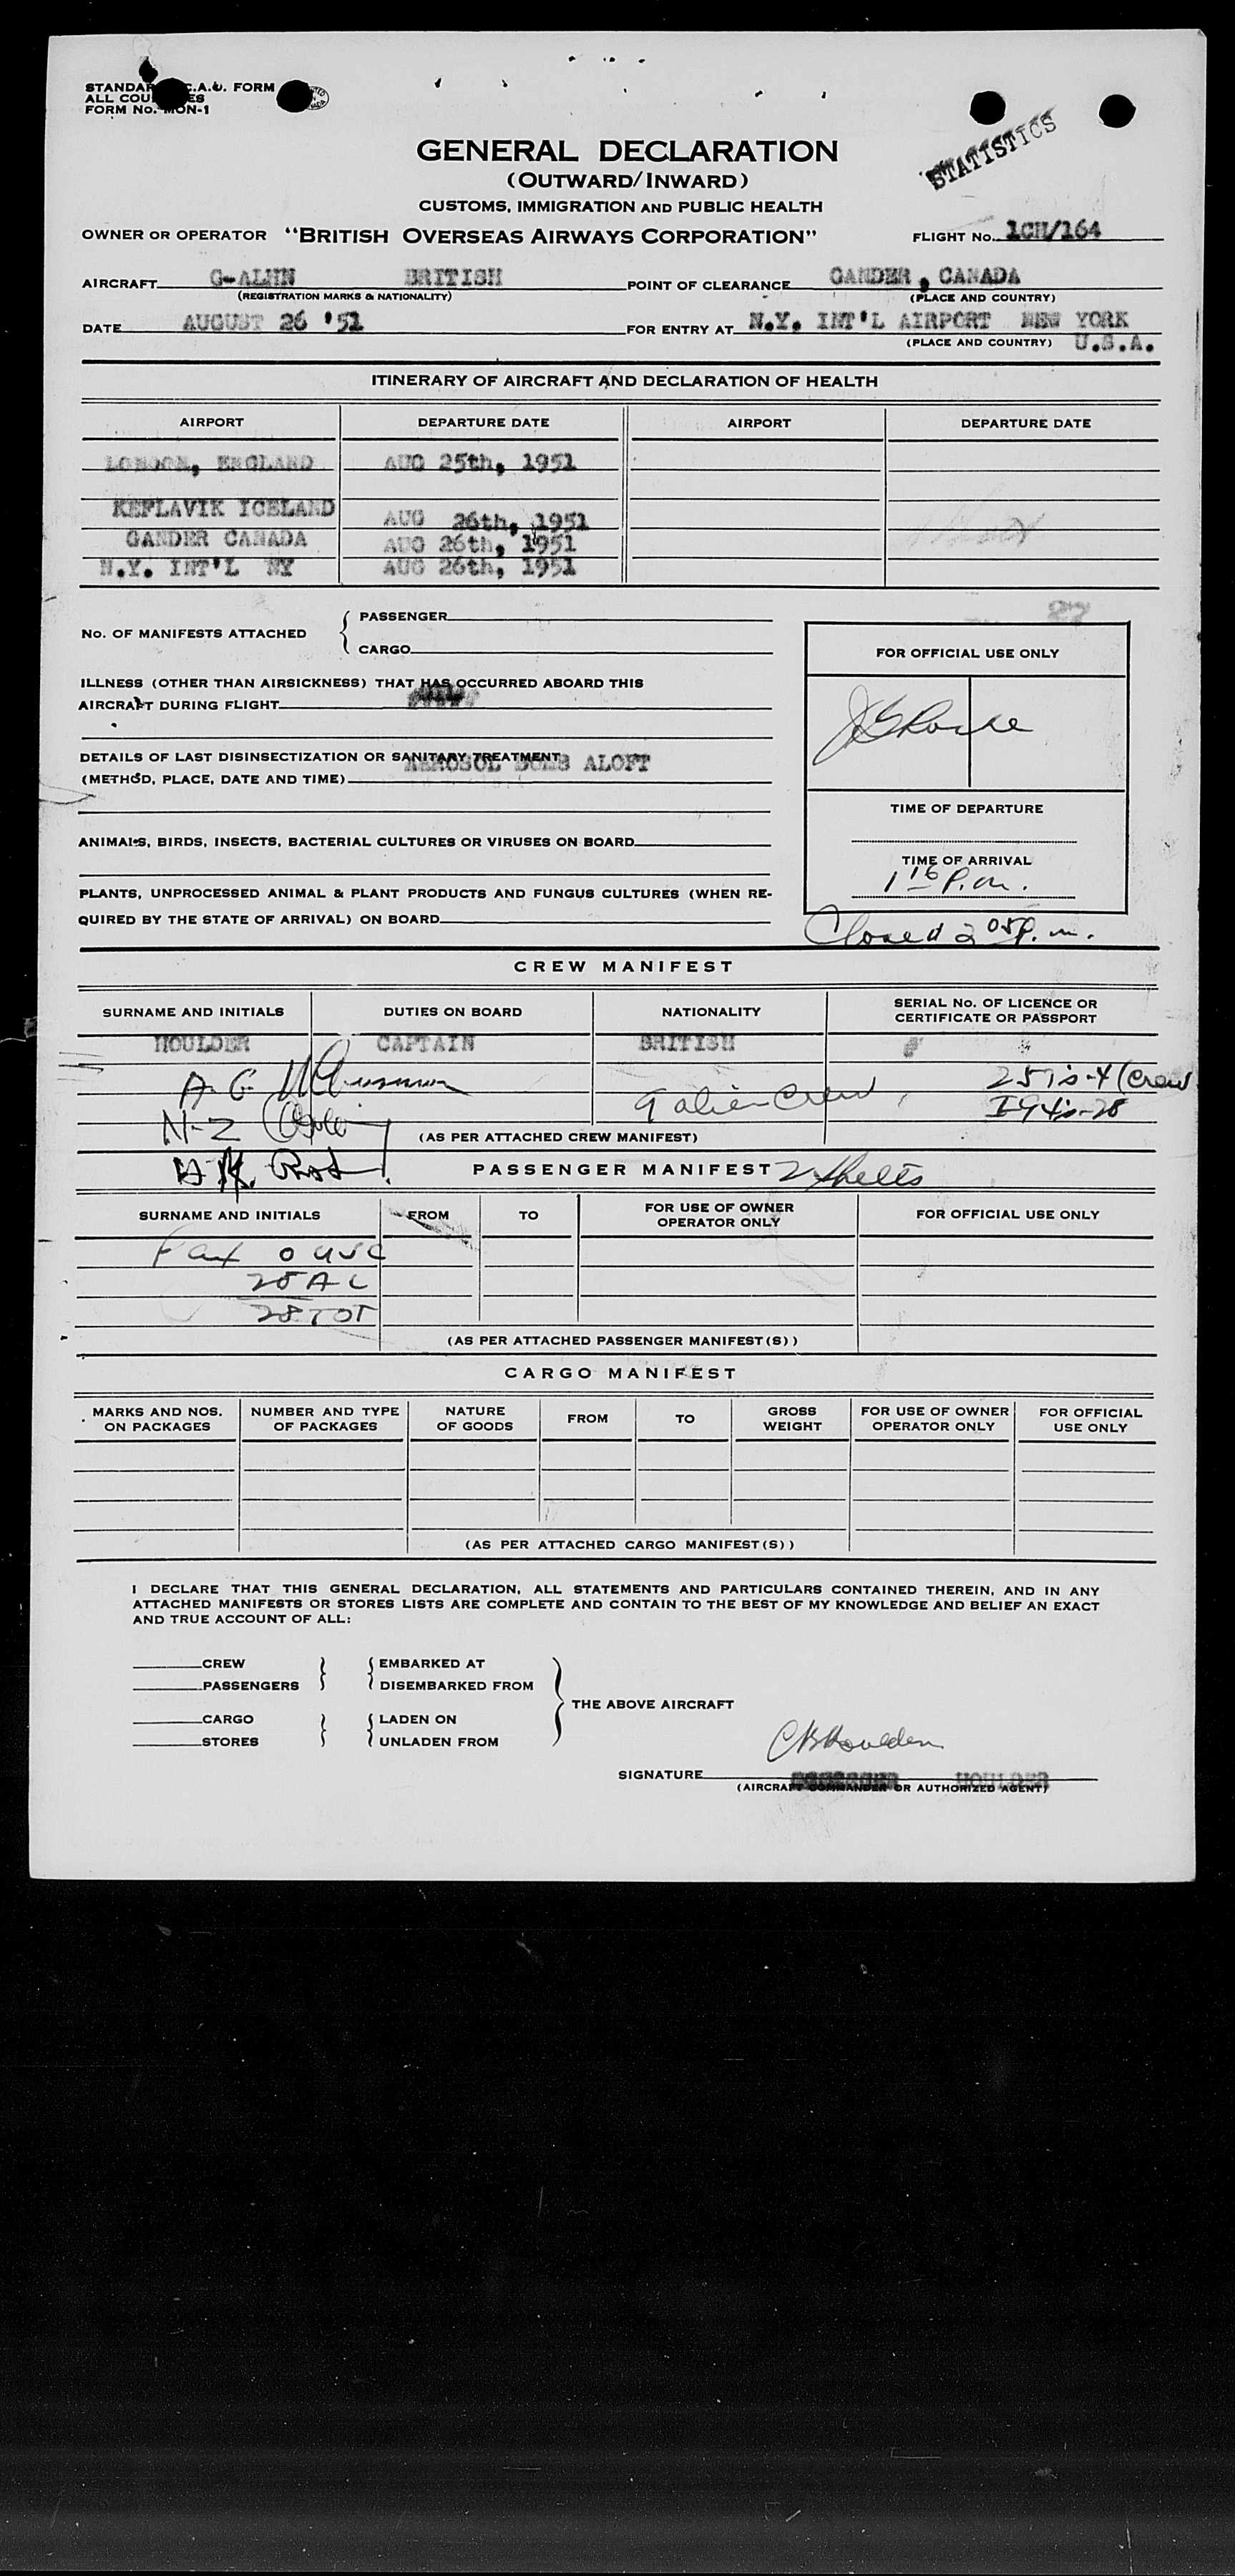 STANDARD I.C.A.O. FORM
ALL COUNTRIES
FORM No. MON-1
STATISTICS
GENERAL DECLARATION
(OUTWARD/INWARD)
CUSTOMS, IMMIGRATION AND PUBLIC HEALTH
OWNER OR OPERATOR "BRITISH OVERSEAS AIRWAYS CORPORATION" FLIGHT No. 1CH/164
AIRCRAFT G-ALHN BRITISH POINT OF CLEARANCE GANDER, CANADA
(REGISTRATION MARKS & NATIONALITY) (PLACE AND COUNTRY)
DATE AUGUST 26 '51 FOR ENTRY AT N.Y. INT'L AIRPORT NEW YORK
(PLACE AND COUNTRY) U.S.A.
ITINERARY OF AIRCRAFT AND DECLARATION OF HEALTH
AIRPORT DEPARTURE DATE AIRPORT DEPARTURE DATE
LONDON, ENGLAND AUG 25th, 1951
KEFLAVIK ICELAND AUG 26th, 1951
GANDER CANADA AUG 26th, 1951
N.Y. INT'L NY AUG 26th, 1951
27
No. OF MANIFESTS ATTACHED { PASSENGER
CARGO
FOR OFFICIAL USE ONLY
ILLNESS (OTHER THAN AIRSICKNESS) THAT HAS OCCURRED ABOARD THIS
AIRCRAFT DURING FLIGHT
DETAILS OF LAST DISINSECTIZATION OR SANITARY TREATMENT
(METHOD, PLACE, DATE AND TIME) AEROSOL BOMB ALOFT
TIME OF DEPARTURE
ANIMALS, BIRDS, INSECTS, BACTERIAL CULTURES OR VIRUSES ON BOARD
TIME OF ARRIVAL
1 16 P.m.
PLANTS, UNPROCESSED ANIMAL & PLANT PRODUCTS AND FUNGUS CULTURES (WHEN RE-
QUIRED BY THE STATE OF ARRIVAL) ON BOARD
Closed 2 05 p.m.
CREW MANIFEST
SURNAME AND INITIALS DUTIES ON BOARD NATIONALITY SERIAL No. OF LICENCE OR
CERTIFICATE OR PASSPORT
HOULDER CAPTAIN BRITISH
A. G. 257's-4 (Crew
9 alien Crew, I94's-28
N-Z
(AS PER ATTACHED CREW MANIFEST)
PASSENGER MANIFEST 2 sheets
SURNAME AND INITIALS FROM TO FOR USE OF OWNER
OPERATOR ONLY FOR OFFICIAL USE ONLY
0 USC
28 A C
28 TOT
(AS PER ATTACHED PASSENGER MANIFEST(S))
CARGO MANIFEST
MARKS AND NOS.
ON PACKAGES NUMBER AND TYPE
OF PACKAGES NATURE
OF GOODS FROM TO GROSS
WEIGHT FOR USE OF OWNER
OPERATOR ONLY FOR OFFICIAL
USE ONLY
(AS PER ATTACHED CARGO MANIFEST(S))
I DECLARE THAT THIS GENERAL DECLARATION, ALL STATEMENTS AND PARTICULARS CONTAINED THEREIN, AND IN ANY
ATTACHED MANIFESTS OR STORES LISTS ARE COMPLETE AND CONTAIN TO THE BEST OF MY KNOWLEDGE AND BELIEF AN EXACT
AND TRUE ACCOUNT OF ALL:
CREW } { EMBARKED AT
PASSENGERS } { DISEMBARKED FROM
THE ABOVE AIRCRAFT
CARGO } { LADEN ON
STORES } { UNLADEN FROM
SIGNATURE HOULDER
(AIRCRAFT COMMANDER OR AUTHORIZED AGENT)